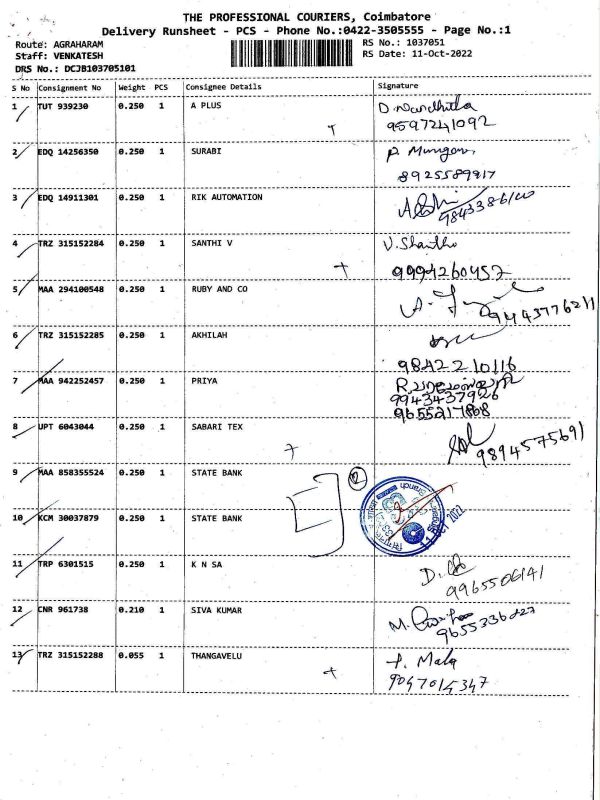 THE PROFESSIONAL COURIERS, Coimbatore
Delivery Runsheet - PCS - Phone No.:0422-3505555 - Page No.:1
Route: AGRAHARAM RS No.: 1037051
Staff: VENKATESH RS Date: 11-Oct-2022
DRS No.: DCJB103705101
S No Consignment No Weight PCS Consignee Details Signature
1 TUT 939230 0.250 1 A PLUS
9597241092
2 EDQ 14256350 0.250 1 SURABI P. Murugan
8925589817
3 EDQ 14911301 0.250 1 RIK AUTOMATION
4 TRZ 315152284 0.250 1 SANTHI V V. Shantho
9994260457
5 MAA 294100548 0.250 1 RUBY AND CO
9443776211
6 TRZ 315152285 0.250 1 AKHILAH
9842210116
7 MAA 942252457 0.250 1 PRIYA
9943437926
9655217808
8 UPT 6043044 0.250 1 SABARI TEX
9894575691
9 MAA 858355524 0.250 1 STATE BANK 2
10 KCM 30037879 0.250 1 STATE BANK
11 TRP 6301515 0.250 1 K N SA
9965506141
12 CNR 961738 0.210 1 SIVA KUMAR
9655336027
13 TRZ 315152288 0.055 1 THANGAVELU T. Mala
9047014347